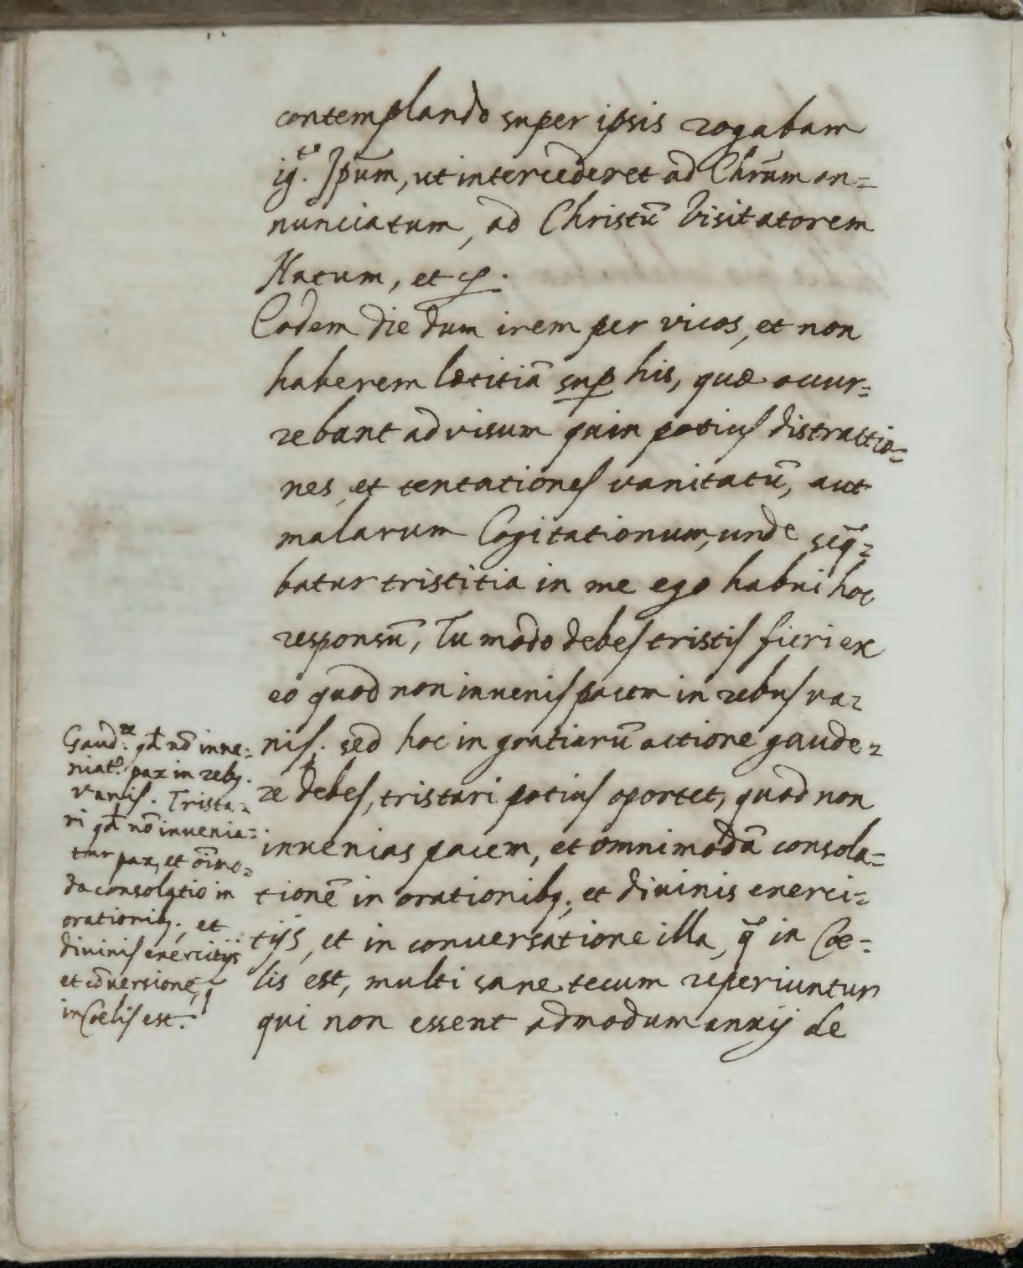 contemplando super ipsis rogabam
ig.to Ipsum, ut intercederet ad Chr̃um an=
nunciatum, ad Christũ Visitatorem
Natum, et
Eodem die dum irem per vicos, et non
haberem lætitiã sup his, quæ occur=
rebant ad visum quin potius distractio=
nes, et tentationes vanitatũ, aut
malarum Cogitationum, unde seq̃=
batur tristitia in me ego habui hoc
responsũ, Tu modo debes tristis fieri ex
eo quod non invenis pacem in rebus va=
nis. sed hoc in gratiarũ actione gaude=
re debes, tristari potius oportet, quod non
invenias pacem, et omnimodã consola=
tionẽ in orationibq, et divinis exerci=
tijs, et in conversatione illa, q̃ in Cœ=
lis est, multi sane tecum reperiuntur
qui non essent admodum anxij de
Gaud. qd nõ inve=
niatr pax in rebq.
vanis. Trista=
ri qd nõ invenia=
tur pax, et õimo=
da consolatio in
orationibq, et
divinis exercitijs
et cõversione, q̃
in Cœlis est.